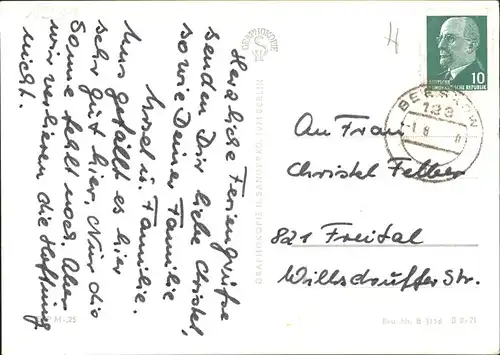 Herzliche Feriengrüße
senden Dir liebe Christel,
sowie Deiner Familie
Ursel u. Familie.
Uns gefällt es hier
sehr gut hier. Nur die
Sonne fehlt noch. Aber
wir verlieren die Hoffnung
nicht.
GRAPHOKOPIE
GRAPHOKOPIE H. SANDER KG, 1071 BERLIN
10
DEUTSCHE
DEMOKRATISCHE REPUBLIK
BEESKOW
123
An Frau
Christel Felber
821 Freital
Willsdruffer Str.
Best.-Nr. B 1156